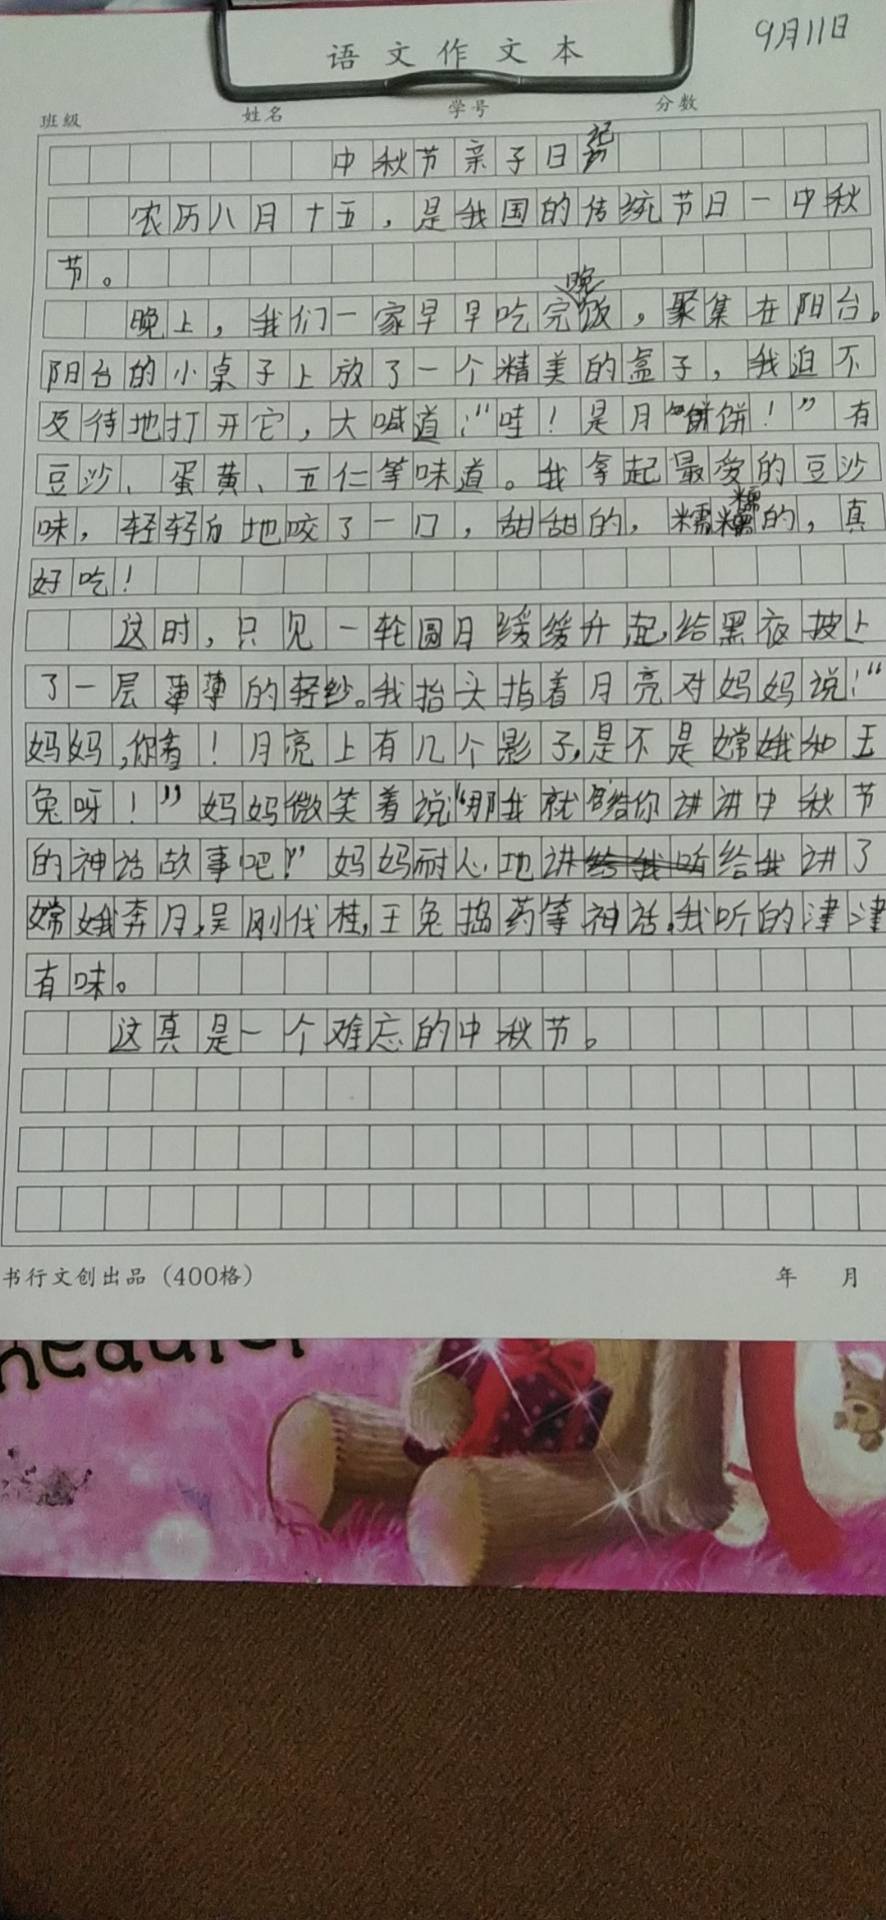 9月11日
语文作文本
班级 姓名 学号 分数
中秋节亲子日记
农历八月十五，是我国的传统节日一中秋
节。
晚上，我们一家早早吃完晚饭，聚集在阳台。
阳台的小桌子上放了一个精美的盒子，我迫不
及待地打开它，大喊道：“哇！是月饼！”有
豆沙、蛋黄、五仁等味道。我拿起最爱的豆沙
味，轻轻地咬了一口，甜甜的，糯糯的，真
好吃！
这时，只见一轮圆月缓缓升起，给黑夜披上
了一层薄薄的轻纱。我抬头指着月亮对妈妈说：“
妈妈，你看！月亮上有几个影子，是不是嫦娥和玉
兔呀！”妈妈微笑着说“那我就给你讲讲中秋节
的神话故事吧！”妈妈耐心地讲给我讲了
嫦娥奔月，吴刚伐桂，玉兔捣药等神话，我听的津津
有味。
这真是一个难忘的中秋节。
书行文创出品（400格） 年 月